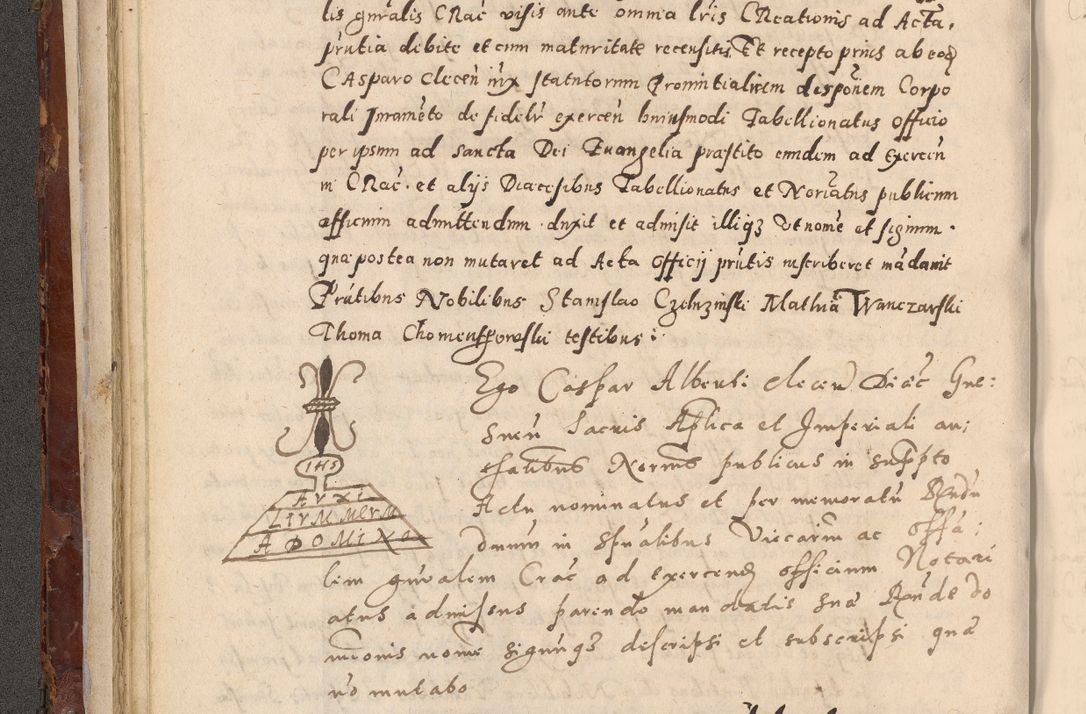 lis gnralis CRac visis ante omnia lris CReationis ad Acta,
prntia debite et cum maturitate recensitis, Et recepto prius ab eod
CAsparo clecen iux statutorum Prouintialiem disponem Corpo
rali Iurameto de fidelr exercen huiusmodi Tabellionatus officio
per ipsum ad sancta Dei Euangelia præstito eundem ad exercen
in CRac. et alijs Diæcesibus Tabellionatus et Noriatus publicum
officium admittendum duxit et admisit illiq3 vt nome et signum
qua postea non mutaret ad Acta officij prntis inscriberet madauit
Prntibus Nobilibus Stanislao Czeluzinski Mathia Wanczarski
Thoma Chomentowski testibus:
Ego Caspar Alberti clecen Diæc Gne:
snen Sacris Aplica et Imperiali au,
thatibus Norius publicus in suppto
Actu nominatus et per memoratu Rndu
dnum in Spualibus Vicarm ac offa,
lem gnralem Crac ad exercend officium Notari
atus admissus parendo mandatis suæ Rndæ do
nionis nome signuqs descripsi et subscripsi qua
no mutabo
IHS
AVXI
LIVM MEVM
A DOMINO